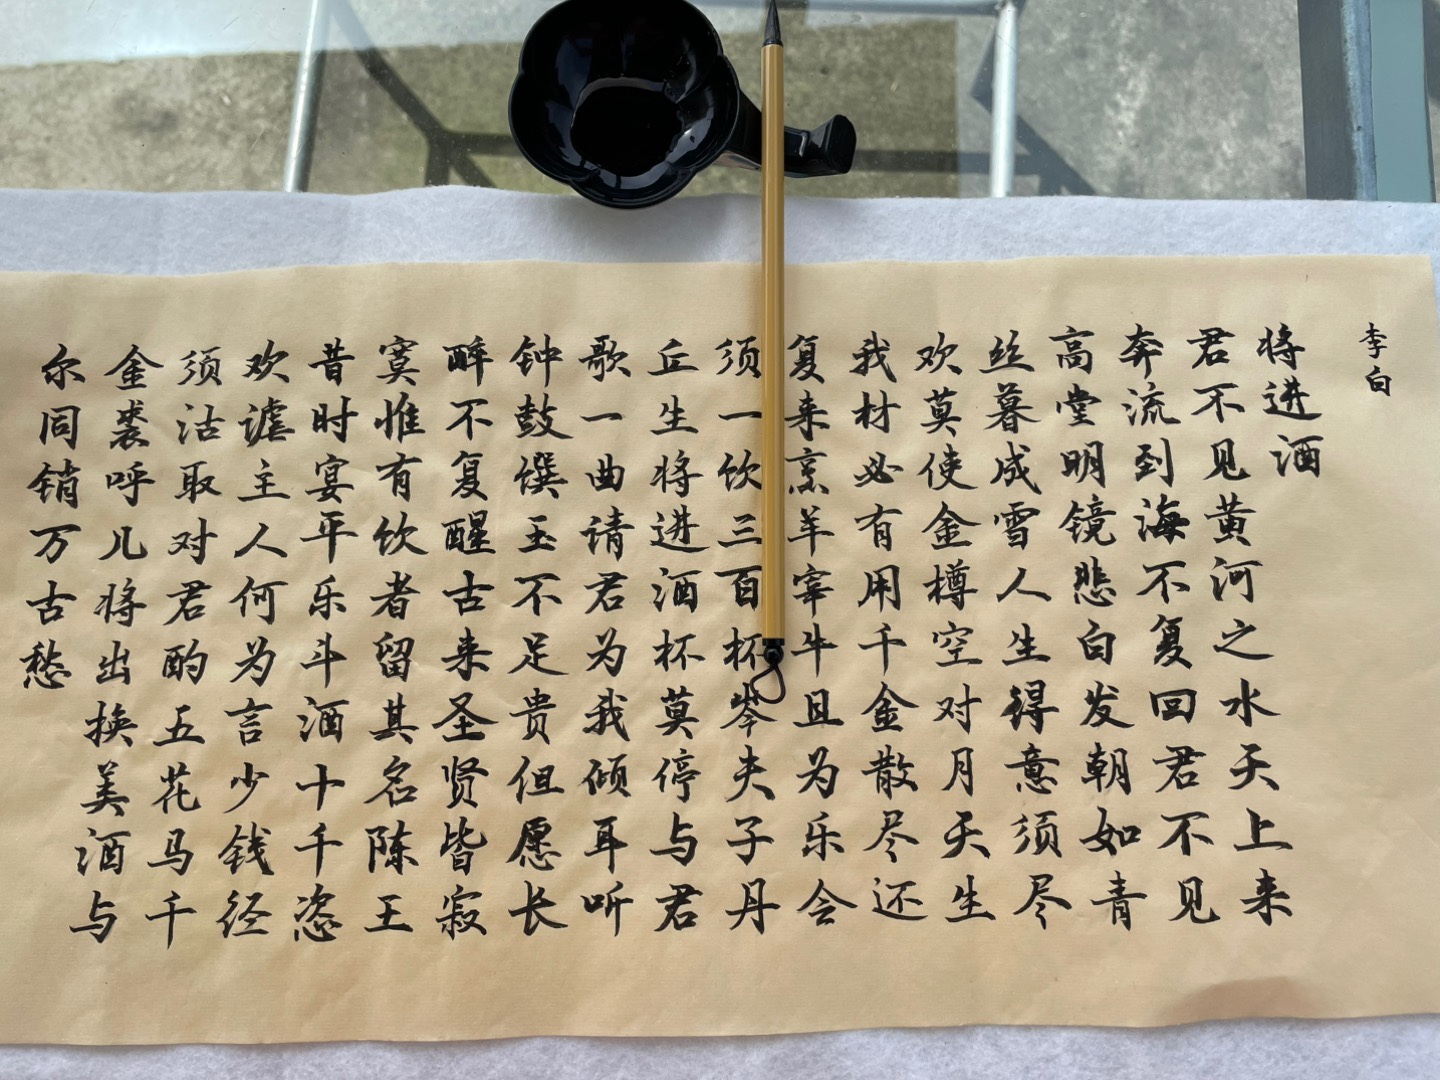 李白
将进酒
君不见黄河之水天上来
奔流到海不复回君不见
高堂明镜悲白发朝如青
丝暮成雪人生得意须尽
欢莫使金樽空对月天生
我材必有用千金散尽还
复来烹羊宰牛且为乐会
须一饮三百杯岑夫子丹
丘生将进酒杯莫停与君
歌一曲请君为我倾耳听
钟鼓馔玉不足贵但愿长
醉不复醒古来圣贤皆寂
寞惟有饮者留其名陈王
昔时宴平乐斗酒十千恣
欢谑主人何为言少钱径
须沽取对君酌五花马千
金裘呼儿将出换美酒与
尔同销万古愁